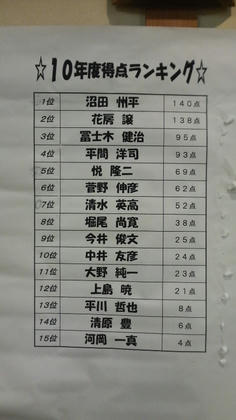 ☆10年度得点ランキング☆
1位 沼田 州平 140点
2位 花房 譲 138点
3位 冨士木 健治 95点
4位 平間 洋司 93点
5位 悦 隆二 69点
6位 菅野 伸彦 62点
7位 清水 英高 52点
8位 堀尾 尚寛 38点
9位 今井 俊文 25点
10位 中井 友彦 24点
11位 大野 純一 23点
12位 上島 暁 21点
13位 平川 哲也 8点
14位 清原 豊 6点
15位 河岡 一真 4点